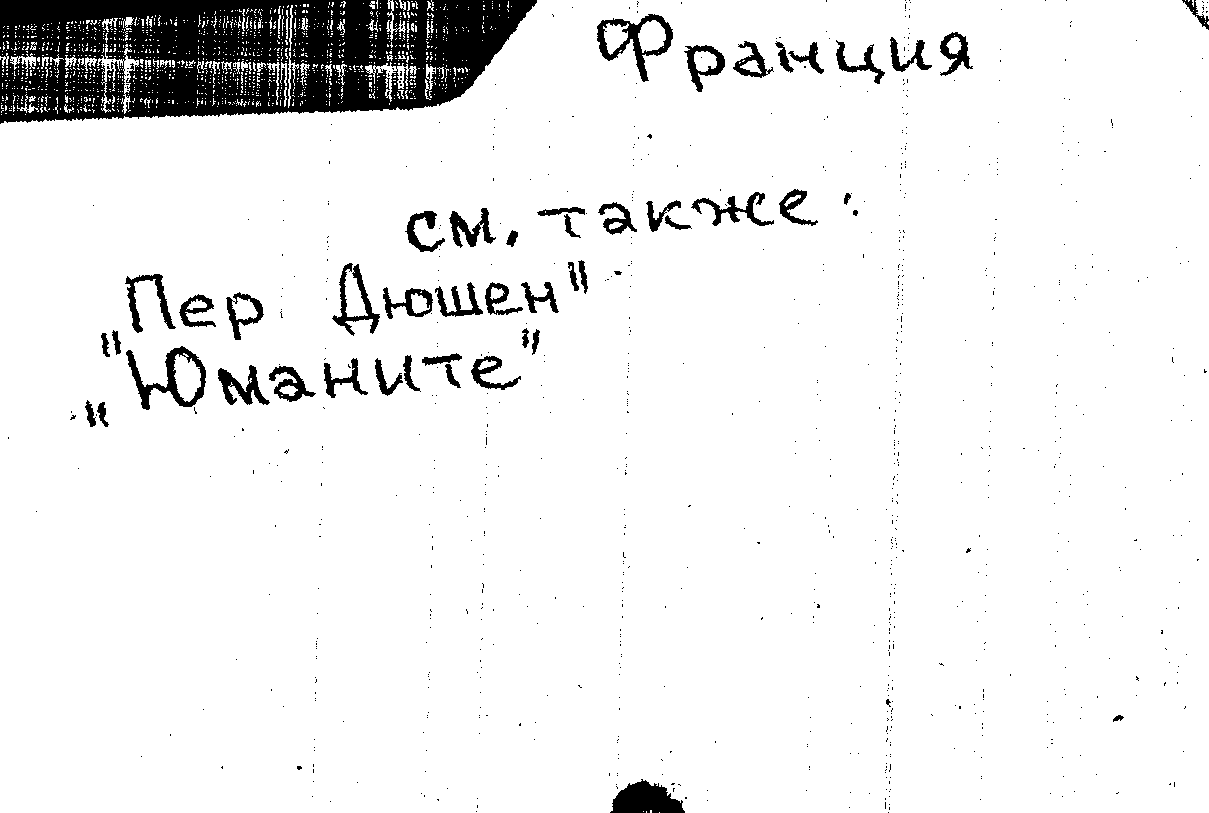 Франция
см. также:
„Пер Дюшен"
„Юманите"